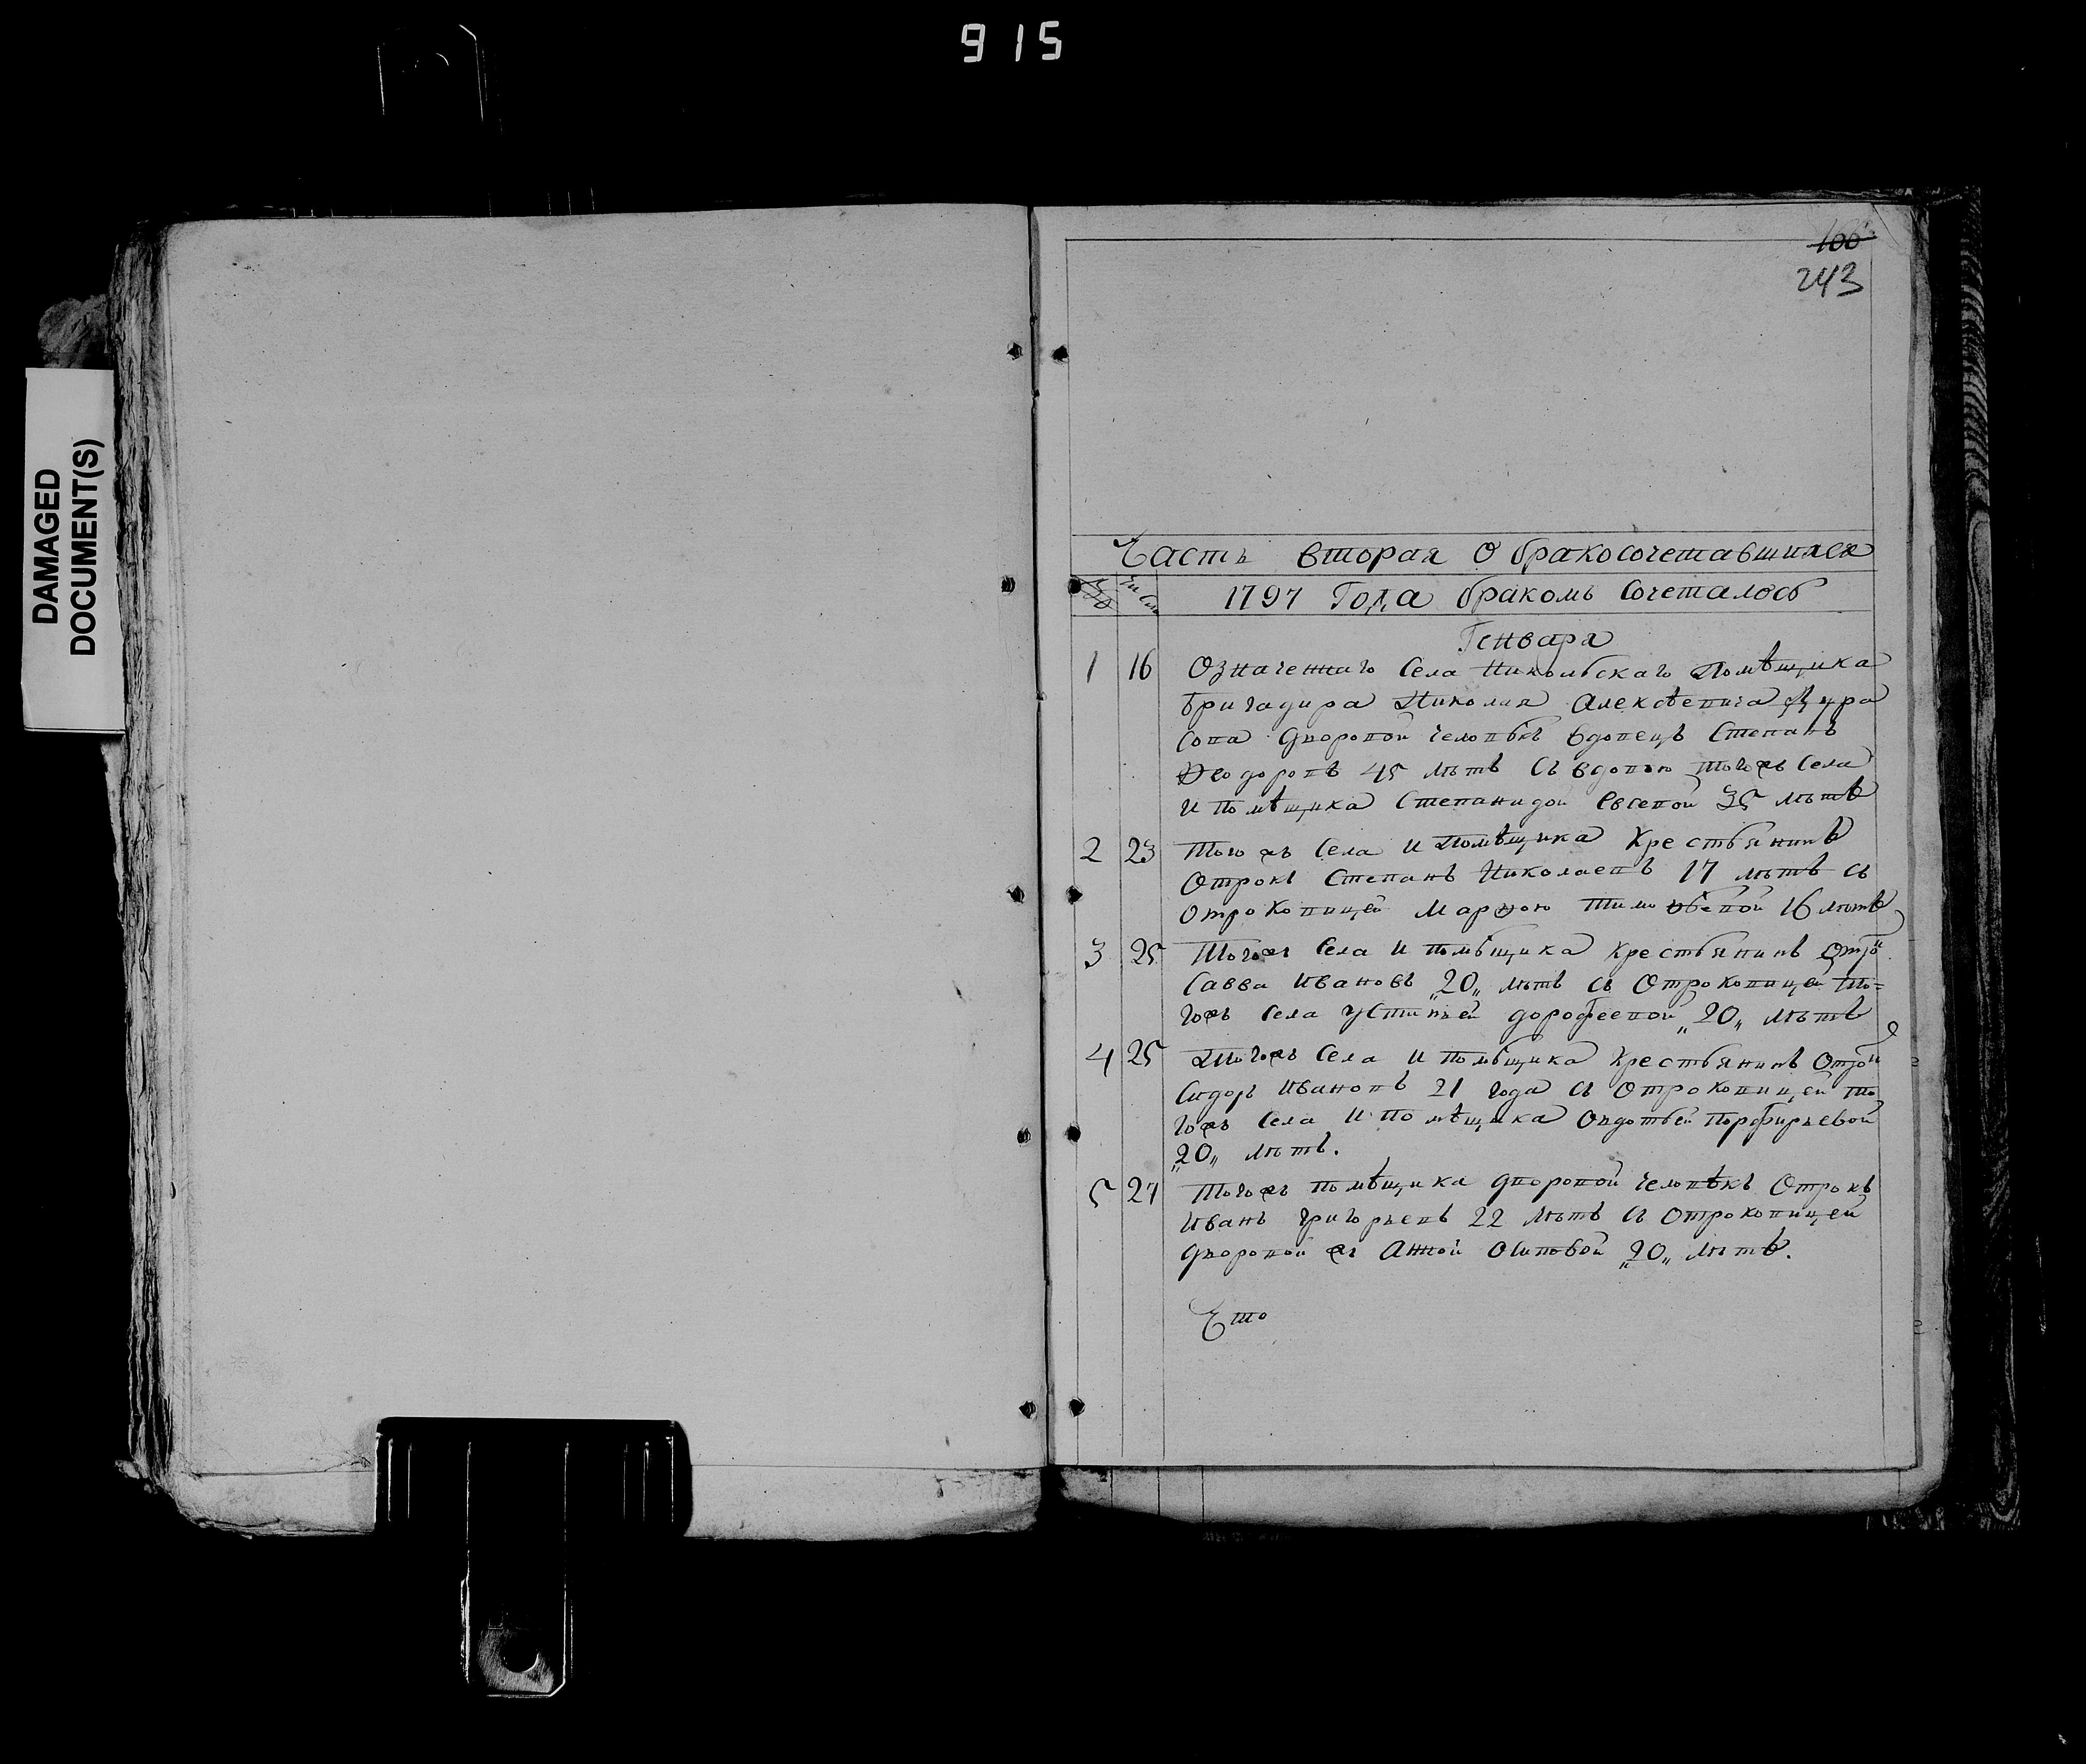 915
DAMAGED
DOCUMENT(S)
100
243
Часть вторая О бракосочетавшихся
№ Числа 1797 Года бракомъ Сочеталось
Генваря
1 16 Означеннаго Села Никольскаго Помѣщика
бригадира Николая Алексѣевича Дура
сова дворовой человѣкъ вдовецъ Степанъ
Ѳеодоровъ 45 лѣтъ съ вдовою тогожъ Села
и помѣщика Степанидой Евсевой 35 лѣтъ
2 23 Тогожъ Села и помѣщика Крестьянинъ
Отрокъ Степанъ Николаевъ 17 лѣтъ съ
отроковицей Марѳою Тимоѳѣевой 16 лѣтъ
3 25 Тогожъ Села и помѣщика крестьянинъ Отро
Савва Ивановъ „20„ лѣтъ съ Отроковицей то=
гожъ Села устиньей дорофеевой „20„ лѣтъ
4 25 Тогожъ Села и помѣщика крестьянинъ Отро
Сидоръ Ивановъ 21 года съ Отроковицей то
гожъ Села и помѣщика Овдотьей Порфирьевой
„20„ лѣтъ.
5 27 Тогожъ помѣщика дворовой человѣкъ Отрокъ
Иванъ григорьевъ 22 лѣтъ съ отроковицей
дворовой жъ Анной Осиповой „20„ лѣтъ.
Что